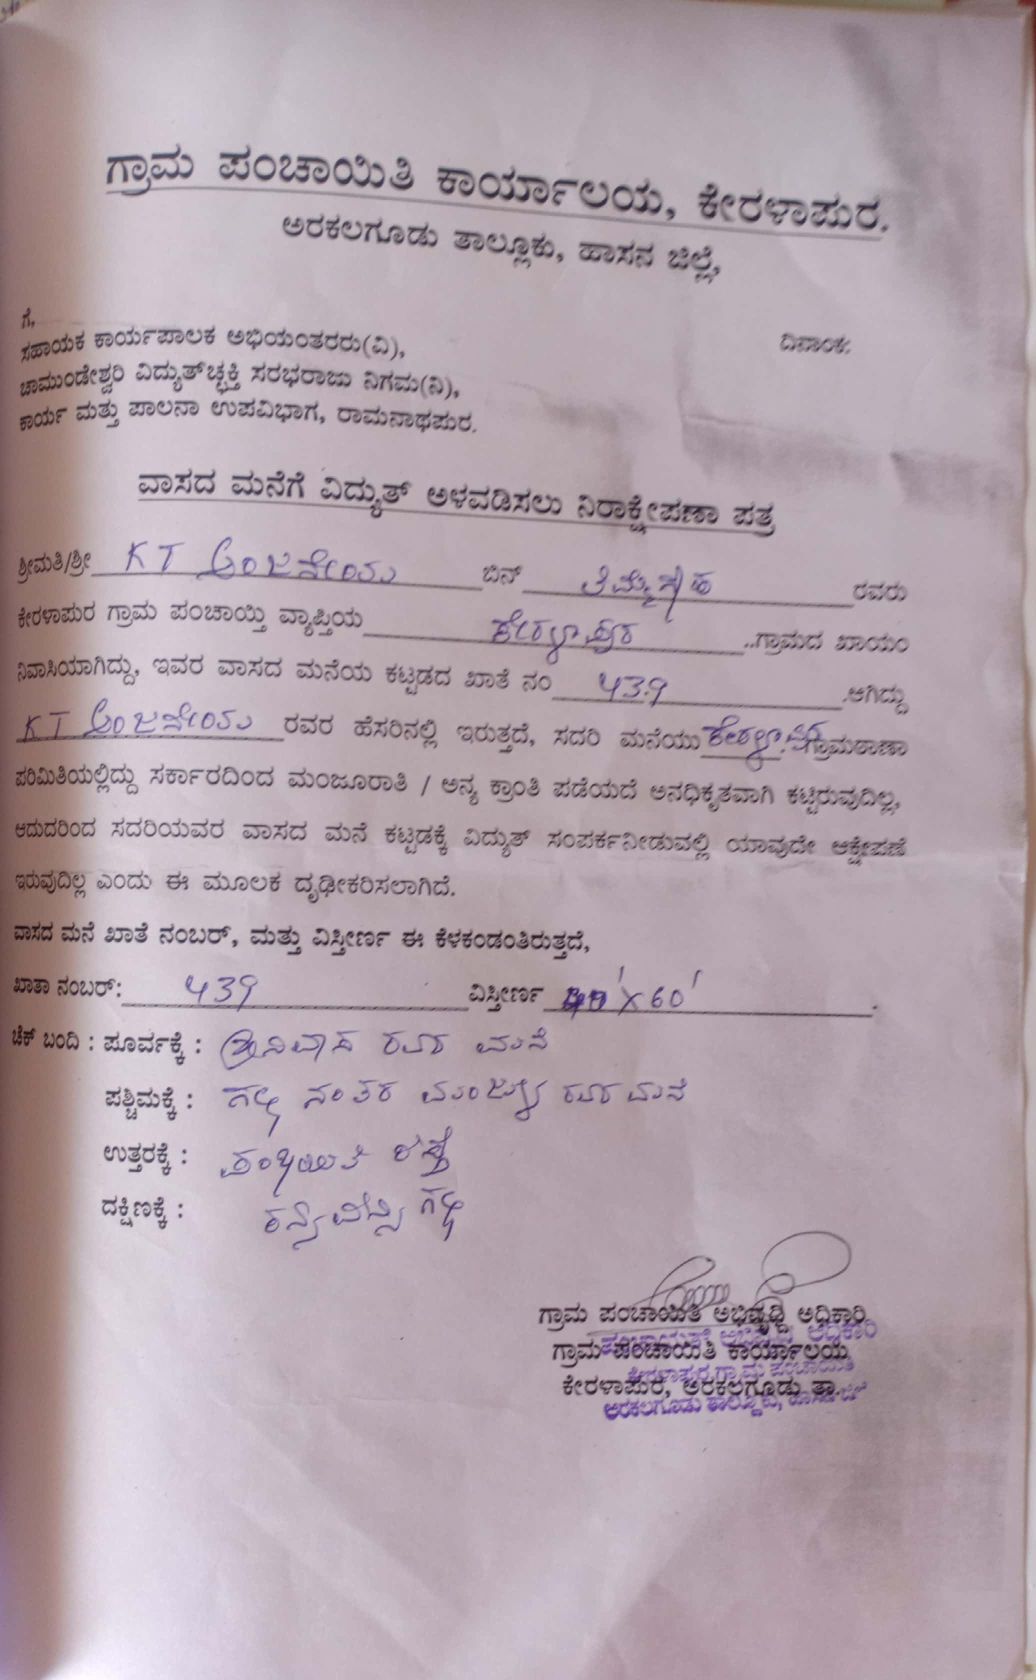 ಗ್ರಾಮ ಪಂಚಾಯಿತಿ ಕಾರ್ಯಾಲಯ, ಕೇರಳಾಪುರ.
ಅರಕಲಗೂಡು ತಾಲ್ಲೂಕು, ಹಾಸನ ಜಿಲ್ಲೆ,
ಗೆ,
ದಿನಾಂಕ:
ಸಹಾಯಕ ಕಾರ್ಯಪಾಲಕ ಅಭಿಯಂತರರು(ವಿ),
ಚಾಮುಂಡೇಶ್ವರಿ ವಿದ್ಯುತ್‌ಚ್ಛಕ್ತಿ ಸರಭರಾಜು ನಿಗಮ(ನಿ),
ಕಾರ್ಯ ಮತ್ತು ಪಾಲನಾ ಉಪವಿಭಾಗ, ರಾಮನಾಥಪುರ.
ವಾಸದ ಮನೆಗೆ ವಿದ್ಯುತ್ ಅಳವಡಿಸಲು ನಿರಾಕ್ಷೇಪಣಾ ಪತ್ರ
ಶ್ರೀಮತಿ/ಶ್ರೀ KT ಆಂಜನೇಯ ಬಿನ್ ರವರು
ಕೇರಳಾಪುರ ಗ್ರಾಮ ಪಂಚಾಯ್ತಿ ವ್ಯಾಪ್ತಿಯ ಕೇರಳಾಪುರ ..ಗ್ರಾಮದ ಖಾಯಂ
ನಿವಾಸಿಯಾಗಿದ್ದು, ಇವರ ವಾಸದ ಮನೆಯ ಕಟ್ಟಡದ ಖಾತೆ ನಂ 439 .ಆಗಿದ್ದು
KT ಆಂಜನೇಯ ರವರ ಹೆಸರಿನಲ್ಲಿ ಇರುತ್ತದೆ, ಸದರಿ ಮನೆಯು ಕೇರಳಾಪುರ ಗ್ರಾಮಠಾಣಾ
ಪರಿಮಿತಿಯಲ್ಲಿದ್ದು ಸರ್ಕಾರದಿಂದ ಮಂಜೂರಾತಿ / ಅನ್ಯ ಕ್ರಾಂತಿ ಪಡೆಯದೆ ಅನಧಿಕೃತವಾಗಿ ಕಟ್ಟಿರುವುದಿಲ್ಲ,
ಆದುದರಿಂದ ಸದರಿಯವರ ವಾಸದ ಮನೆ ಕಟ್ಟಡಕ್ಕೆ ವಿದ್ಯುತ್ ಸಂಪರ್ಕನೀಡುವಲ್ಲಿ ಯಾವುದೇ ಆಕ್ಷೇಪಣೆ
ಇರುವುದಿಲ್ಲ ಎಂದು ಈ ಮೂಲಕ ದೃಢೀಕರಿಸಲಾಗಿದೆ.
ವಾಸದ ಮನೆ ಖಾತೆ ನಂಬರ್, ಮತ್ತು ವಿಸ್ತೀರ್ಣ ಈ ಕೆಳಕಂಡಂತಿರುತ್ತದೆ,
ಖಾತಾ ನಂಬರ್: 439 ವಿಸ್ತೀರ್ಣ X 60' .
ಚೆಕ್ ಬಂದಿ : ಪೂರ್ವಕ್ಕೆ : ಶ್ರೀನಿವಾಸ ರವರ ಮನೆ
ಪಶ್ಚಿಮಕ್ಕೆ : ಗಲ್ಲಿ ನಂತರ ರವರ ಮನೆ
ಉತ್ತರಕ್ಕೆ : ಪಂಚಾಯಿತಿ ರಸ್ತೆ
ದಕ್ಷಿಣಕ್ಕೆ : ಗಲ್ಲಿ
ಗ್ರಾಮ ಪಂಚಾಯಿತಿ ಅಭಿವೃದ್ಧಿ ಅಧಿಕಾರಿ
ಪಂಚಾಯತ್ ಅಭಿವೃದ್ಧಿ ಅಧಿಕಾರಿ
ಗ್ರಾಮ ಪಂಚಾಯಿತಿ ಕಾರ್ಯಾಲಯ
ಕೇರಳಾಪುರ ಗ್ರಾಮ ಪಂಚಾಯಿತಿ
ಕೇರಳಾಪುರ, ಅರಕಲಗೂಡು ತಾ.
ಅರಕಲಗೂಡು ತಾಲ್ಲೂಕು,